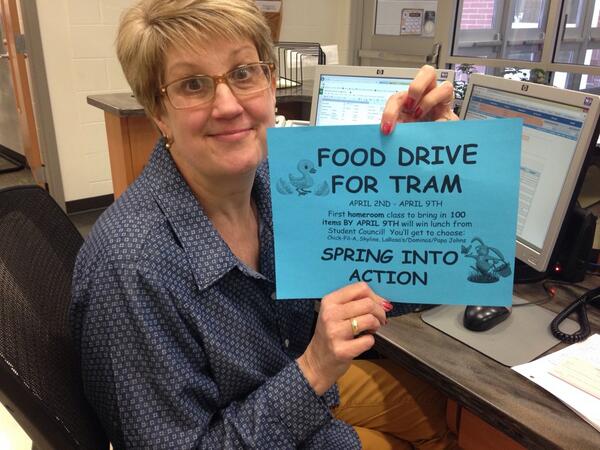 FOOD DRIVE
FOR TRAM
APRIL 2ND - APRIL 9TH
First homeroom class to bring in 100
items BY APRIL 9TH will win lunch from
Student Council! You'll get to choose:
Chick-Fil-A, Skyline, LaRosa's/Dominos/Papa Johns
SPRING INTO
ACTION